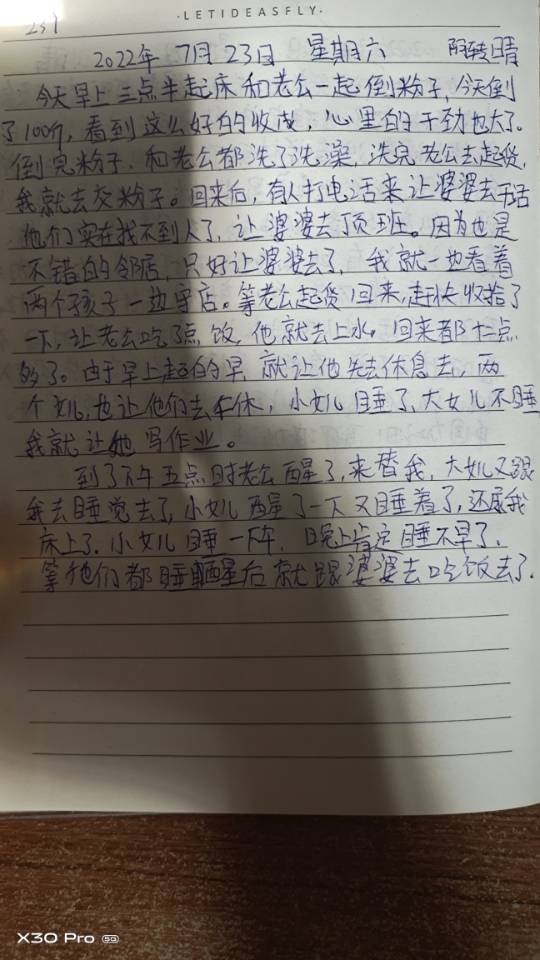 ·LETIDEASFLY·
231
2022年 7月 23日 星期六 阴转晴
今天早上三点半起床和老公一起倒粉子,今天倒
了100斤,看到这么好的收成,心里的干劲也大了。
倒完粉子,和老公都洗了洗澡,洗完老公去起货,
我就去交粉子。回来后,有人打电话来让婆婆去干活
他们实在找不到人了,让婆婆去顶班。因为也是
不错的邻居,只好让婆婆去了,我就一边看着
两个孩子一边守店。等老公起货回来,赶快收拾了
一下,让老公吃了点饭,他就去上水。回来都十二点
多了。由于早上起的早,就让他先去休息去,两
个女儿也让他们去午休,小女儿睡了,大女儿不睡
我就让她写作业。
到了下午五点时老公醒了,来替我,大女儿又跟
我去睡觉去了,小女儿醒了一下又睡着了,还尿我
床上了。小女儿睡一下午,晚上肯定睡不早了。
等他们都睡醒后就跟婆婆去吃饭去了.
X30 Pro 5G